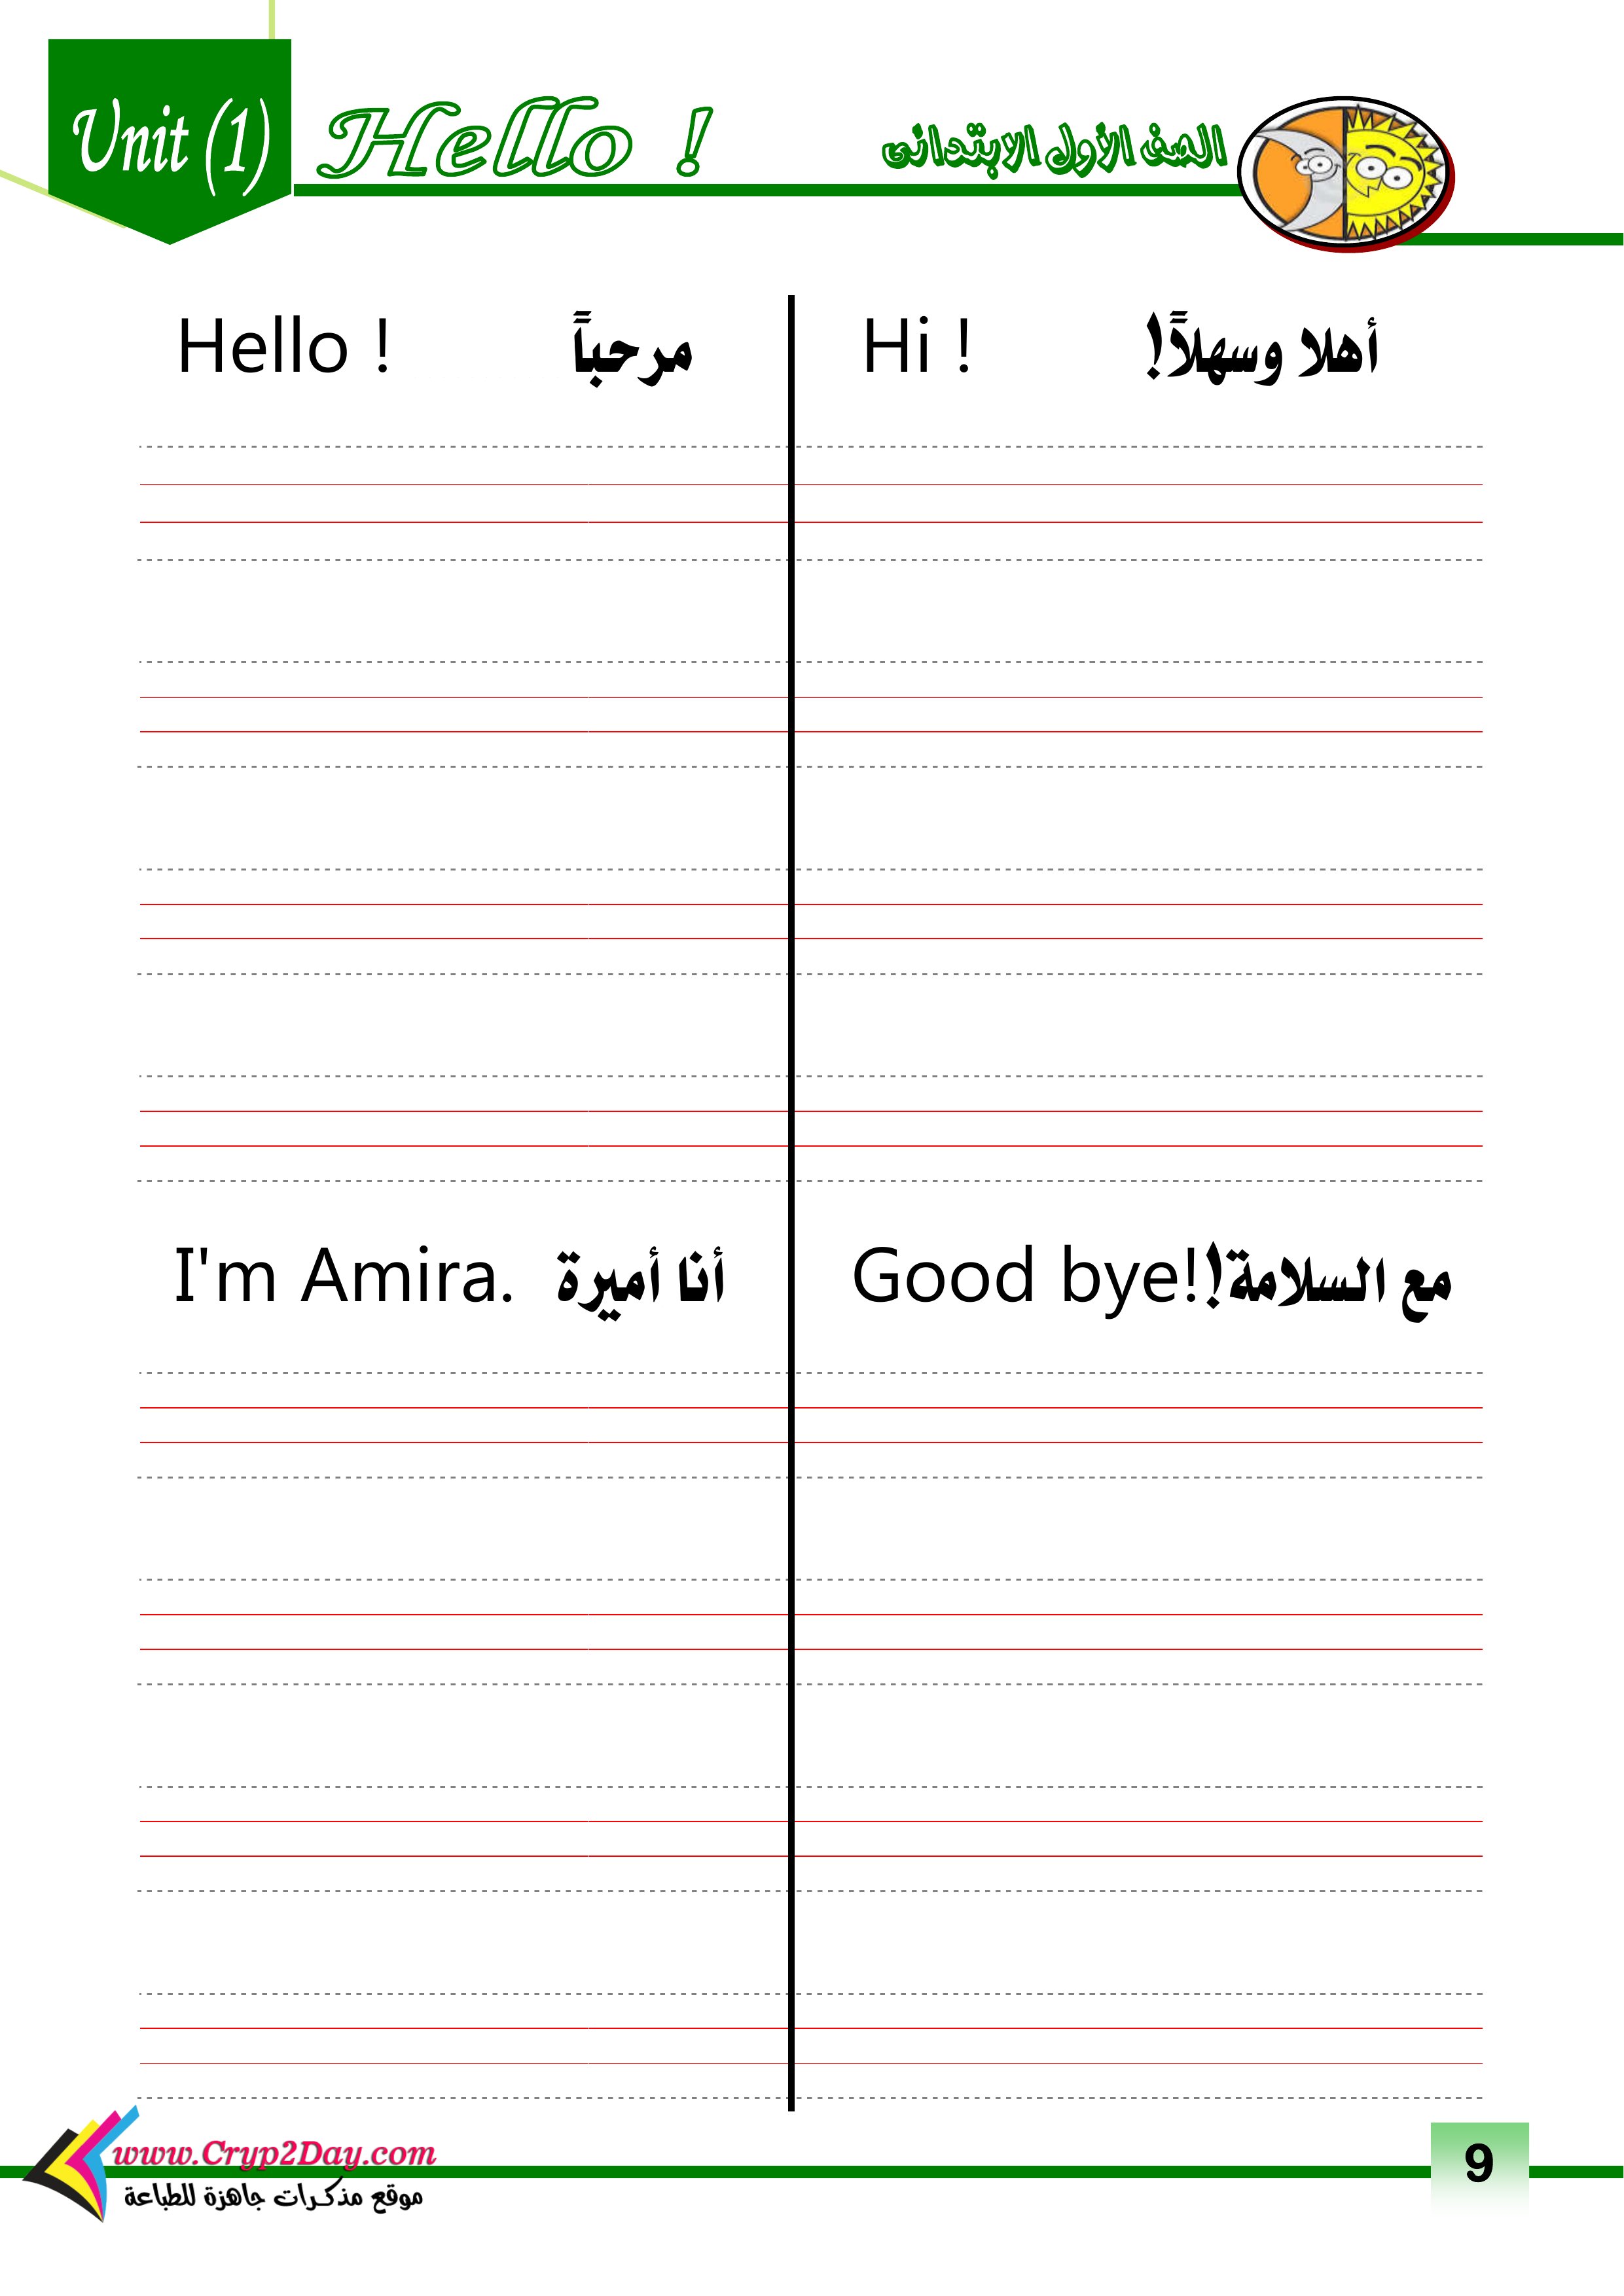 Unit (1) Hello ! الصف الأول الابتدائى
Hello ! مرحباً Hi ! أهلا وسهلاً!
I'm Amira. أنا أميرة Good bye! مع السلامة!
www.Cryp2Day.com
موقع مذكرات جاهزة للطباعة
9